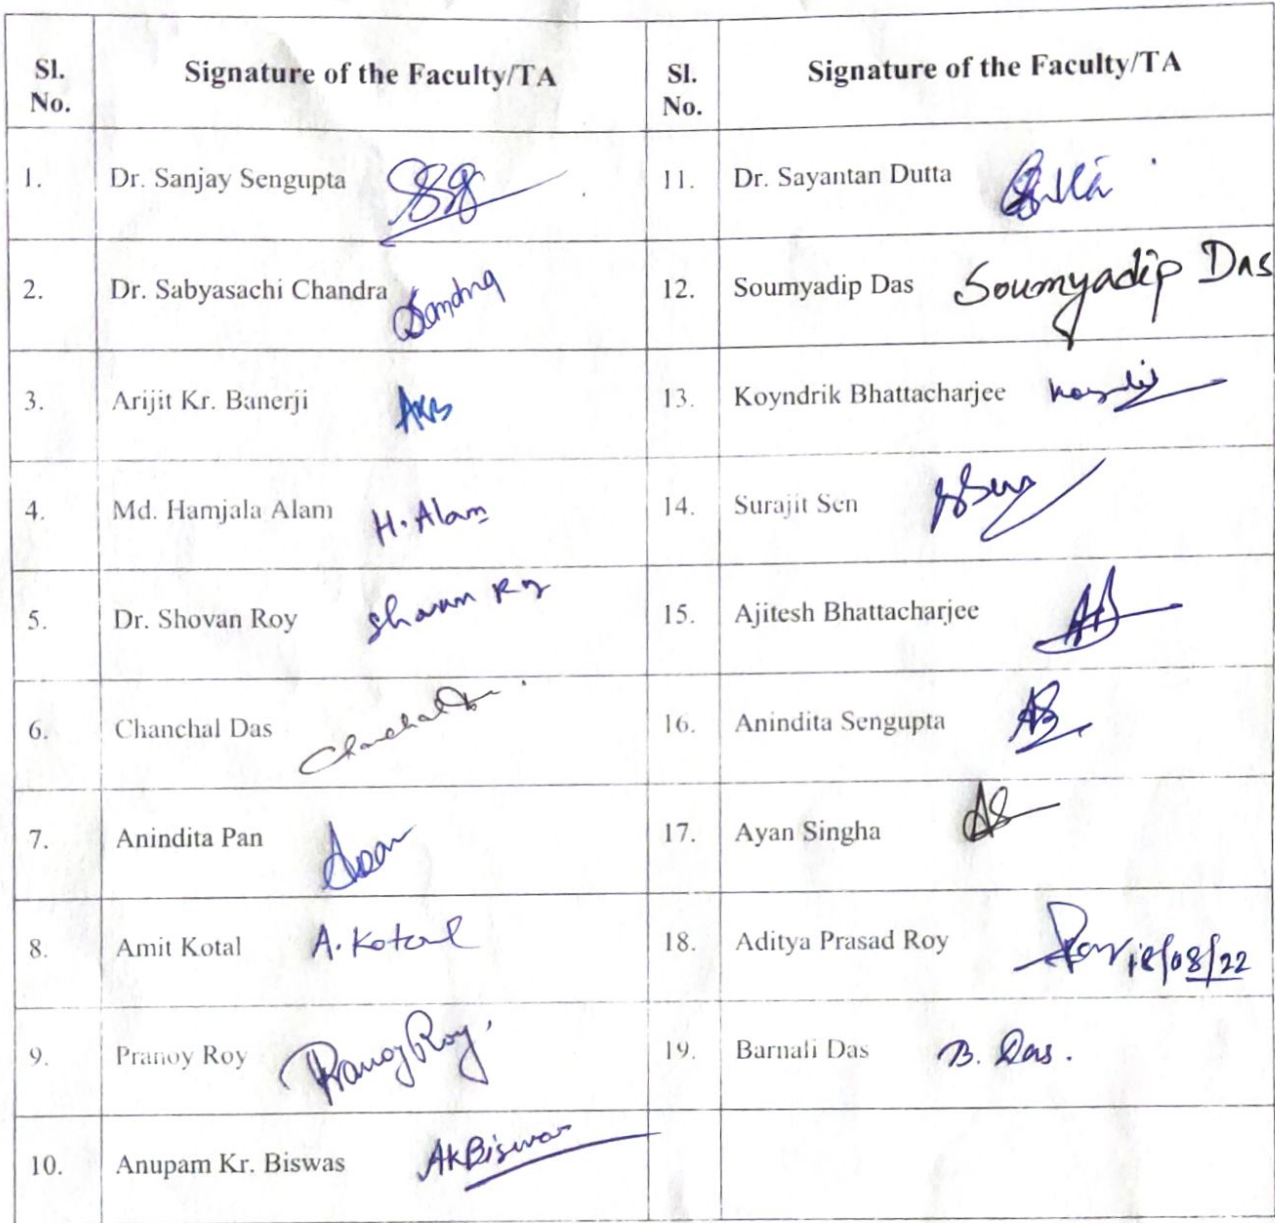 Sl. No.
Signature of the Faculty/TA
Sl. No.
Signature of the Faculty/TA
1. Dr. Sanjay Sengupta
11. Dr. Sayantan Dutta
2. Dr. Sabyasachi Chandra
12. Soumyadip Das Soumyadip Das
3. Arijit Kr. Banerji AKB
13. Koyndrik Bhattacharjee
4. Md. Hamjala Alam H. Alam
14. Surajit Sen SSen
5. Dr. Shovan Roy Shovan Roy
15. Ajitesh Bhattacharjee
6. Chanchal Das Chanchal
16. Anindita Sengupta
7. Anindita Pan
17. Ayan Singha AS
8. Amit Kotal A. Kotal
18. Aditya Prasad Roy Roy 18/08/22
9. Pranoy Roy Pranoy Roy
19. Barnali Das B. Das.
10. Anupam Kr. Biswas AKBiswas